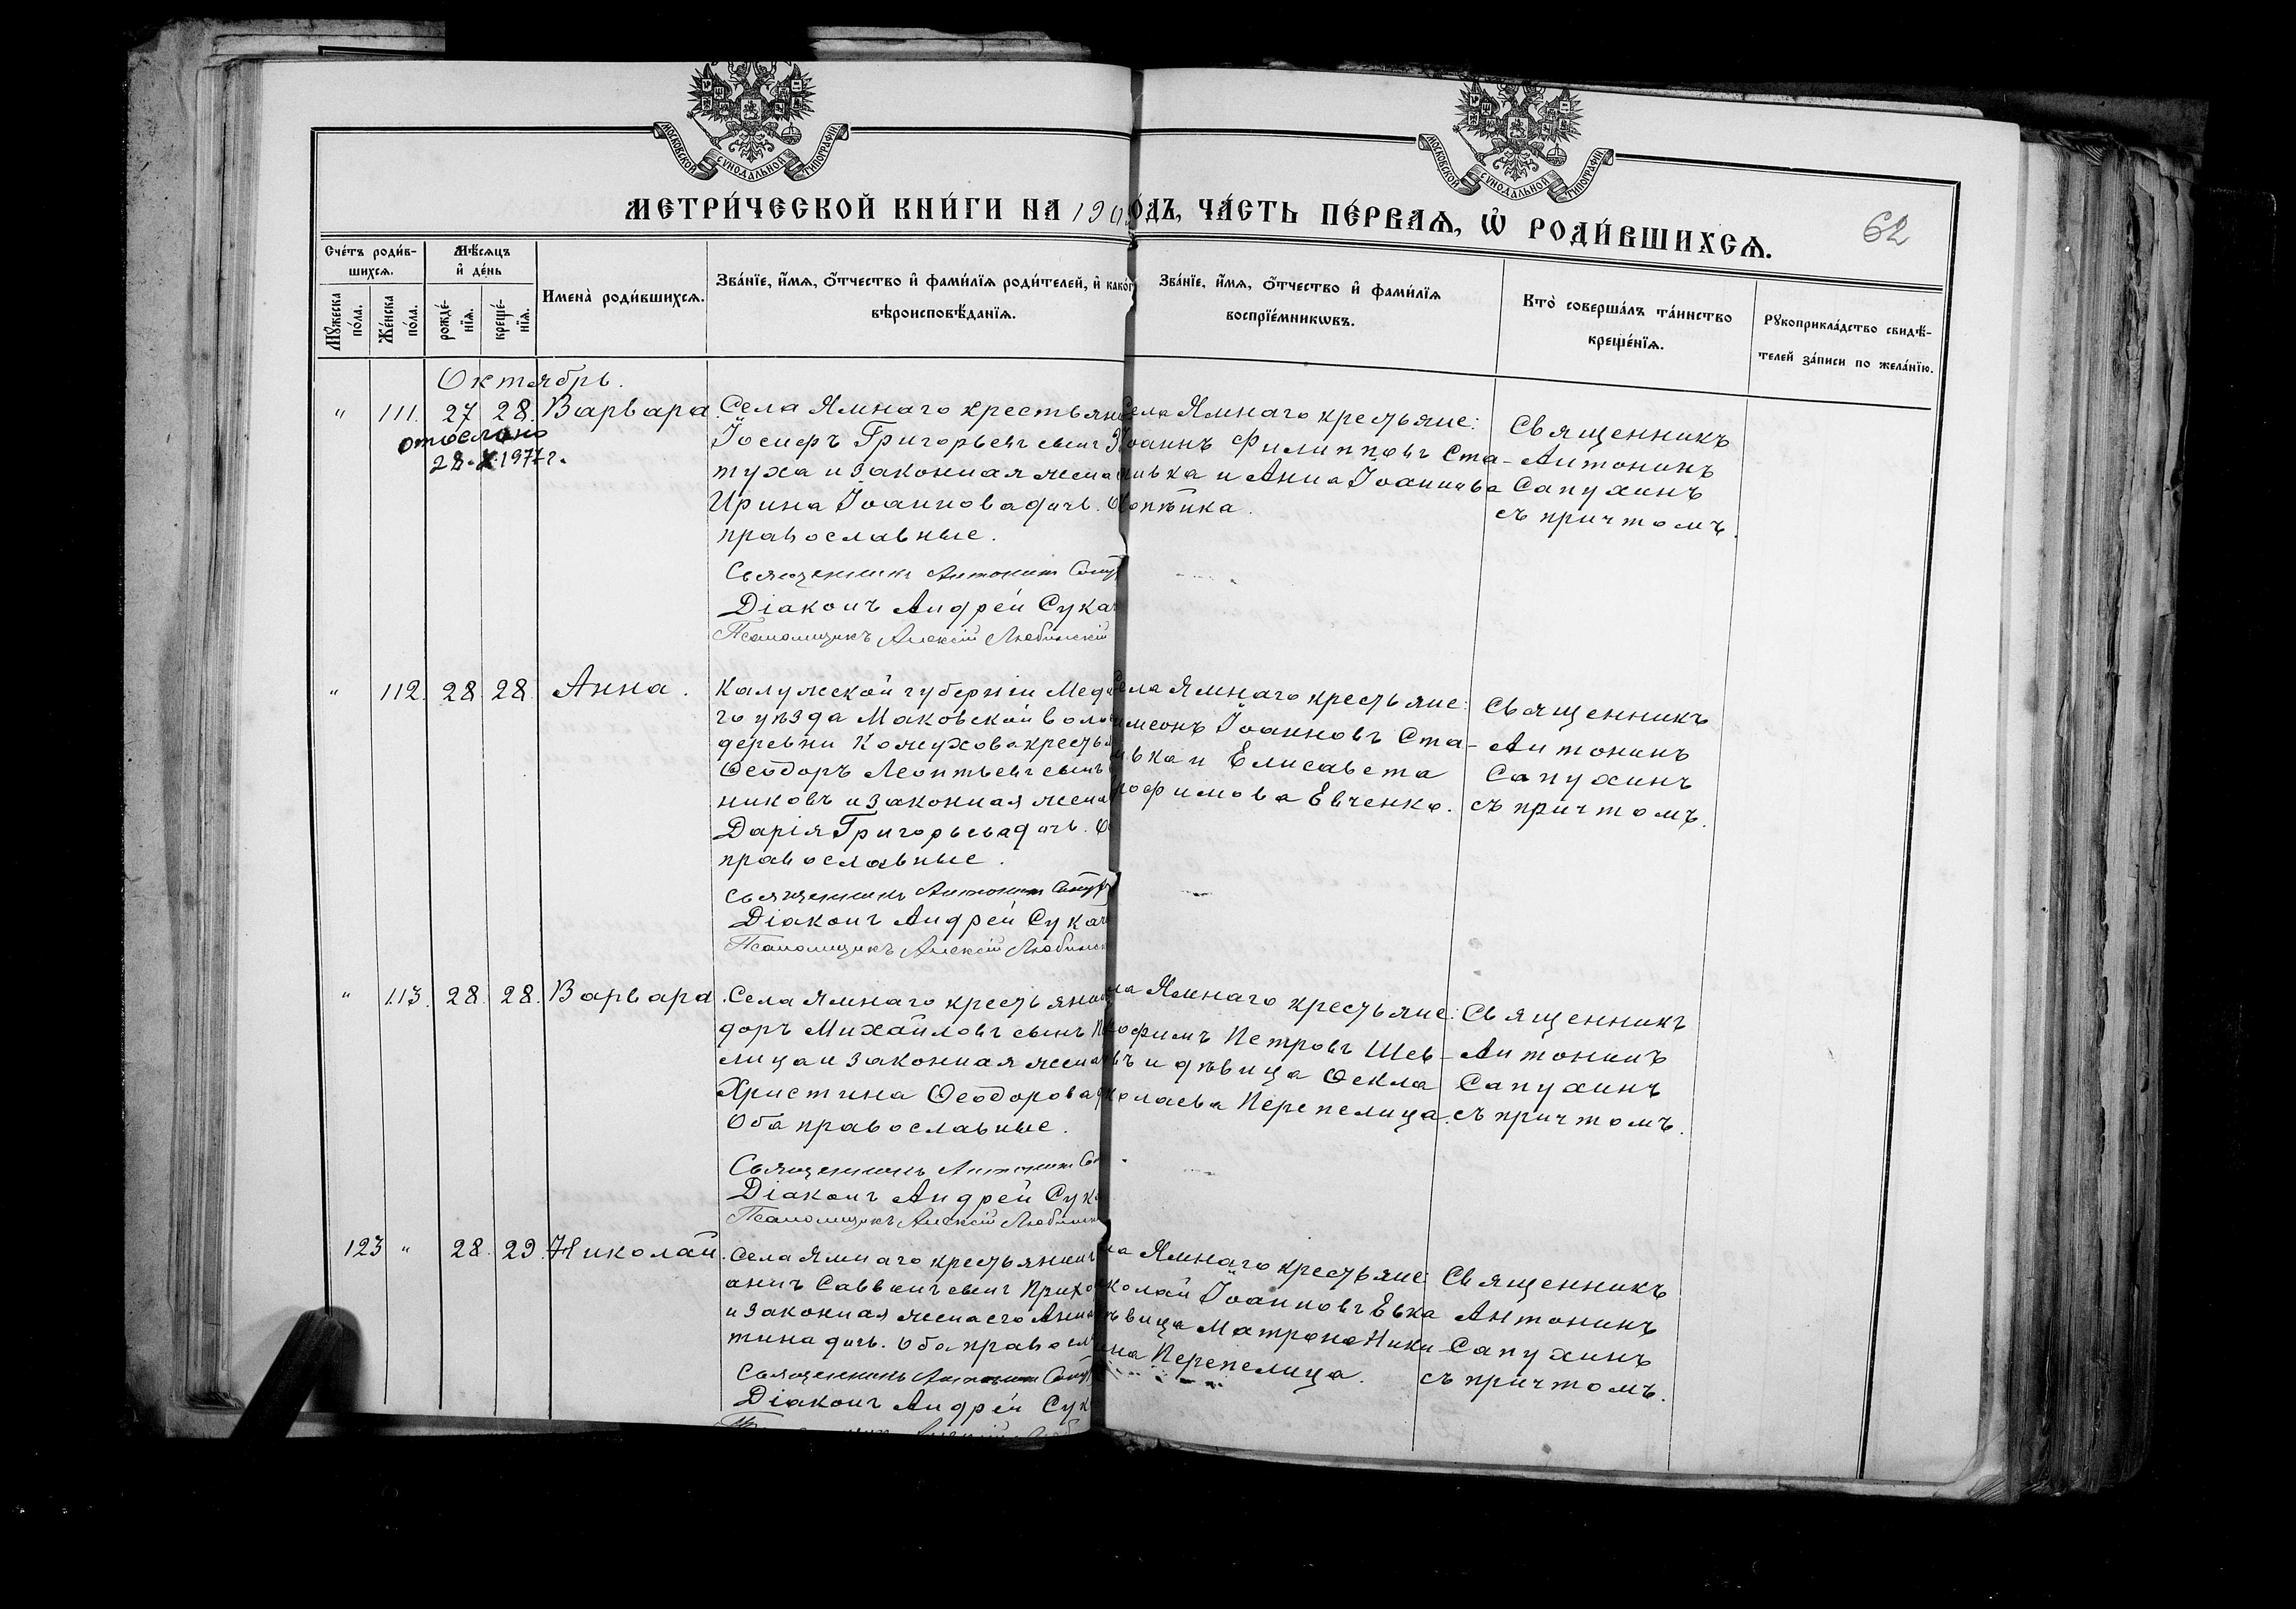 МОСКОВСКОЙ СУНОДАЛЬНОЙ ТИПОГРАФІИ
МОСКОВСКОЙ СУНОДАЛЬНОЙ ТИПОГРАФІИ
МЕТРИ́ЧЕСКОЙ КНИ́ГИ НА 190 ОДЪ, ЧА́СТЬ ПЕ́РВАѦ, Ѡ҆ РОДИ́ВШИХСѦ.
62
Сче́тъ роди́в-
шихсѧ.
Мѣ́сѧцъ
и҆ де́нь
Мꙋ́жеска
по́ла.
Же́нска
по́ла.
рожде́-
нїѧ.
креще́-
нїѧ.
Имена̀ роди́вшихсѧ.
Зва́нїе, и҆́мѧ, ѻ҆́тчество и҆ фами́лїѧ роди́телей, и҆ како́г
вѣроисповѣ́данїѧ.
Зва́нїе, и҆́мѧ, ѻ҆́тчество и҆ фами́лїѧ
воспрїе́мникѡвъ.
Кто̀ соверша́лъ та́инство
креще́нїѧ.
Рꙋкоприкла́дство свидѣ́-
телей за́писи по жела́нїю.
Октябрь.
" 111. 27 28. Варвара
отослано
28.X.1977г.
Села Ямнаго крестьян
Іосифъ Григорьевъ сынъ
туха и законная жена
Ирина Іоаннова дочь.
православные.
Священникъ Антонинъ
Діаконъ Андрей Сука
Псаломщикъ Алексій Любинскій
Села Ямнаго крестьяне:
Іоаннъ Филипповъ Ста-
вка и Анна Іоаннова
Копѣйка.
Священникъ
Антонинъ
Сапухинъ
съ причтомъ.
" 112. 28. 28. Анна.
Калужской губерніи Меды
го уѣзда Маковской воло
деревни Кожухова крестья
Ѳеодоръ Леонтьевъ сынъ
никовъ и законная жена
Дарія Григорьева дочь.
православные.
Священникъ Антонинъ
Діаконъ Андрей Сука
Псаломщикъ Алексій Любинск
Села Ямнаго крестьяне:
имеонъ Іоанновъ Ста-
вка и Елисавета
рофимова Евченко.
Священникъ
Антонинъ
Сапухинъ
съ причтомъ.
" 113. 28. 28. Варвара.
Села Ямнаго крестьянинъ
доръ Михайловъ сынъ
лица и законная жена
Христина Ѳеодорова
Оба православные.
Священникъ Антонинъ
Діаконъ Андрей Сук
Псаломщикъ Алексій Любинск
ла Ямнаго крестьяне:
рофимъ Петровъ Шев-
въ и дѣвица Ѳекла
колаева Перепелица.
Священникъ
Антонинъ
Сапухинъ
съ причтомъ.
123 " 28. 29. Николай.
Села Ямнаго крестьянинъ
аннъ Саввинъ сынъ Прихо
и законная жена его Анна
тина дочь. Оба правосл
Священникъ Антонинъ
Діаконъ Андрей Сук
ла Ямнаго крестьяне:
колай Іоанновъ Евка
ѣвица Матрона Ники-
ина Перепелица.
Священникъ
Антонинъ
Сапухинъ
съ причтомъ.